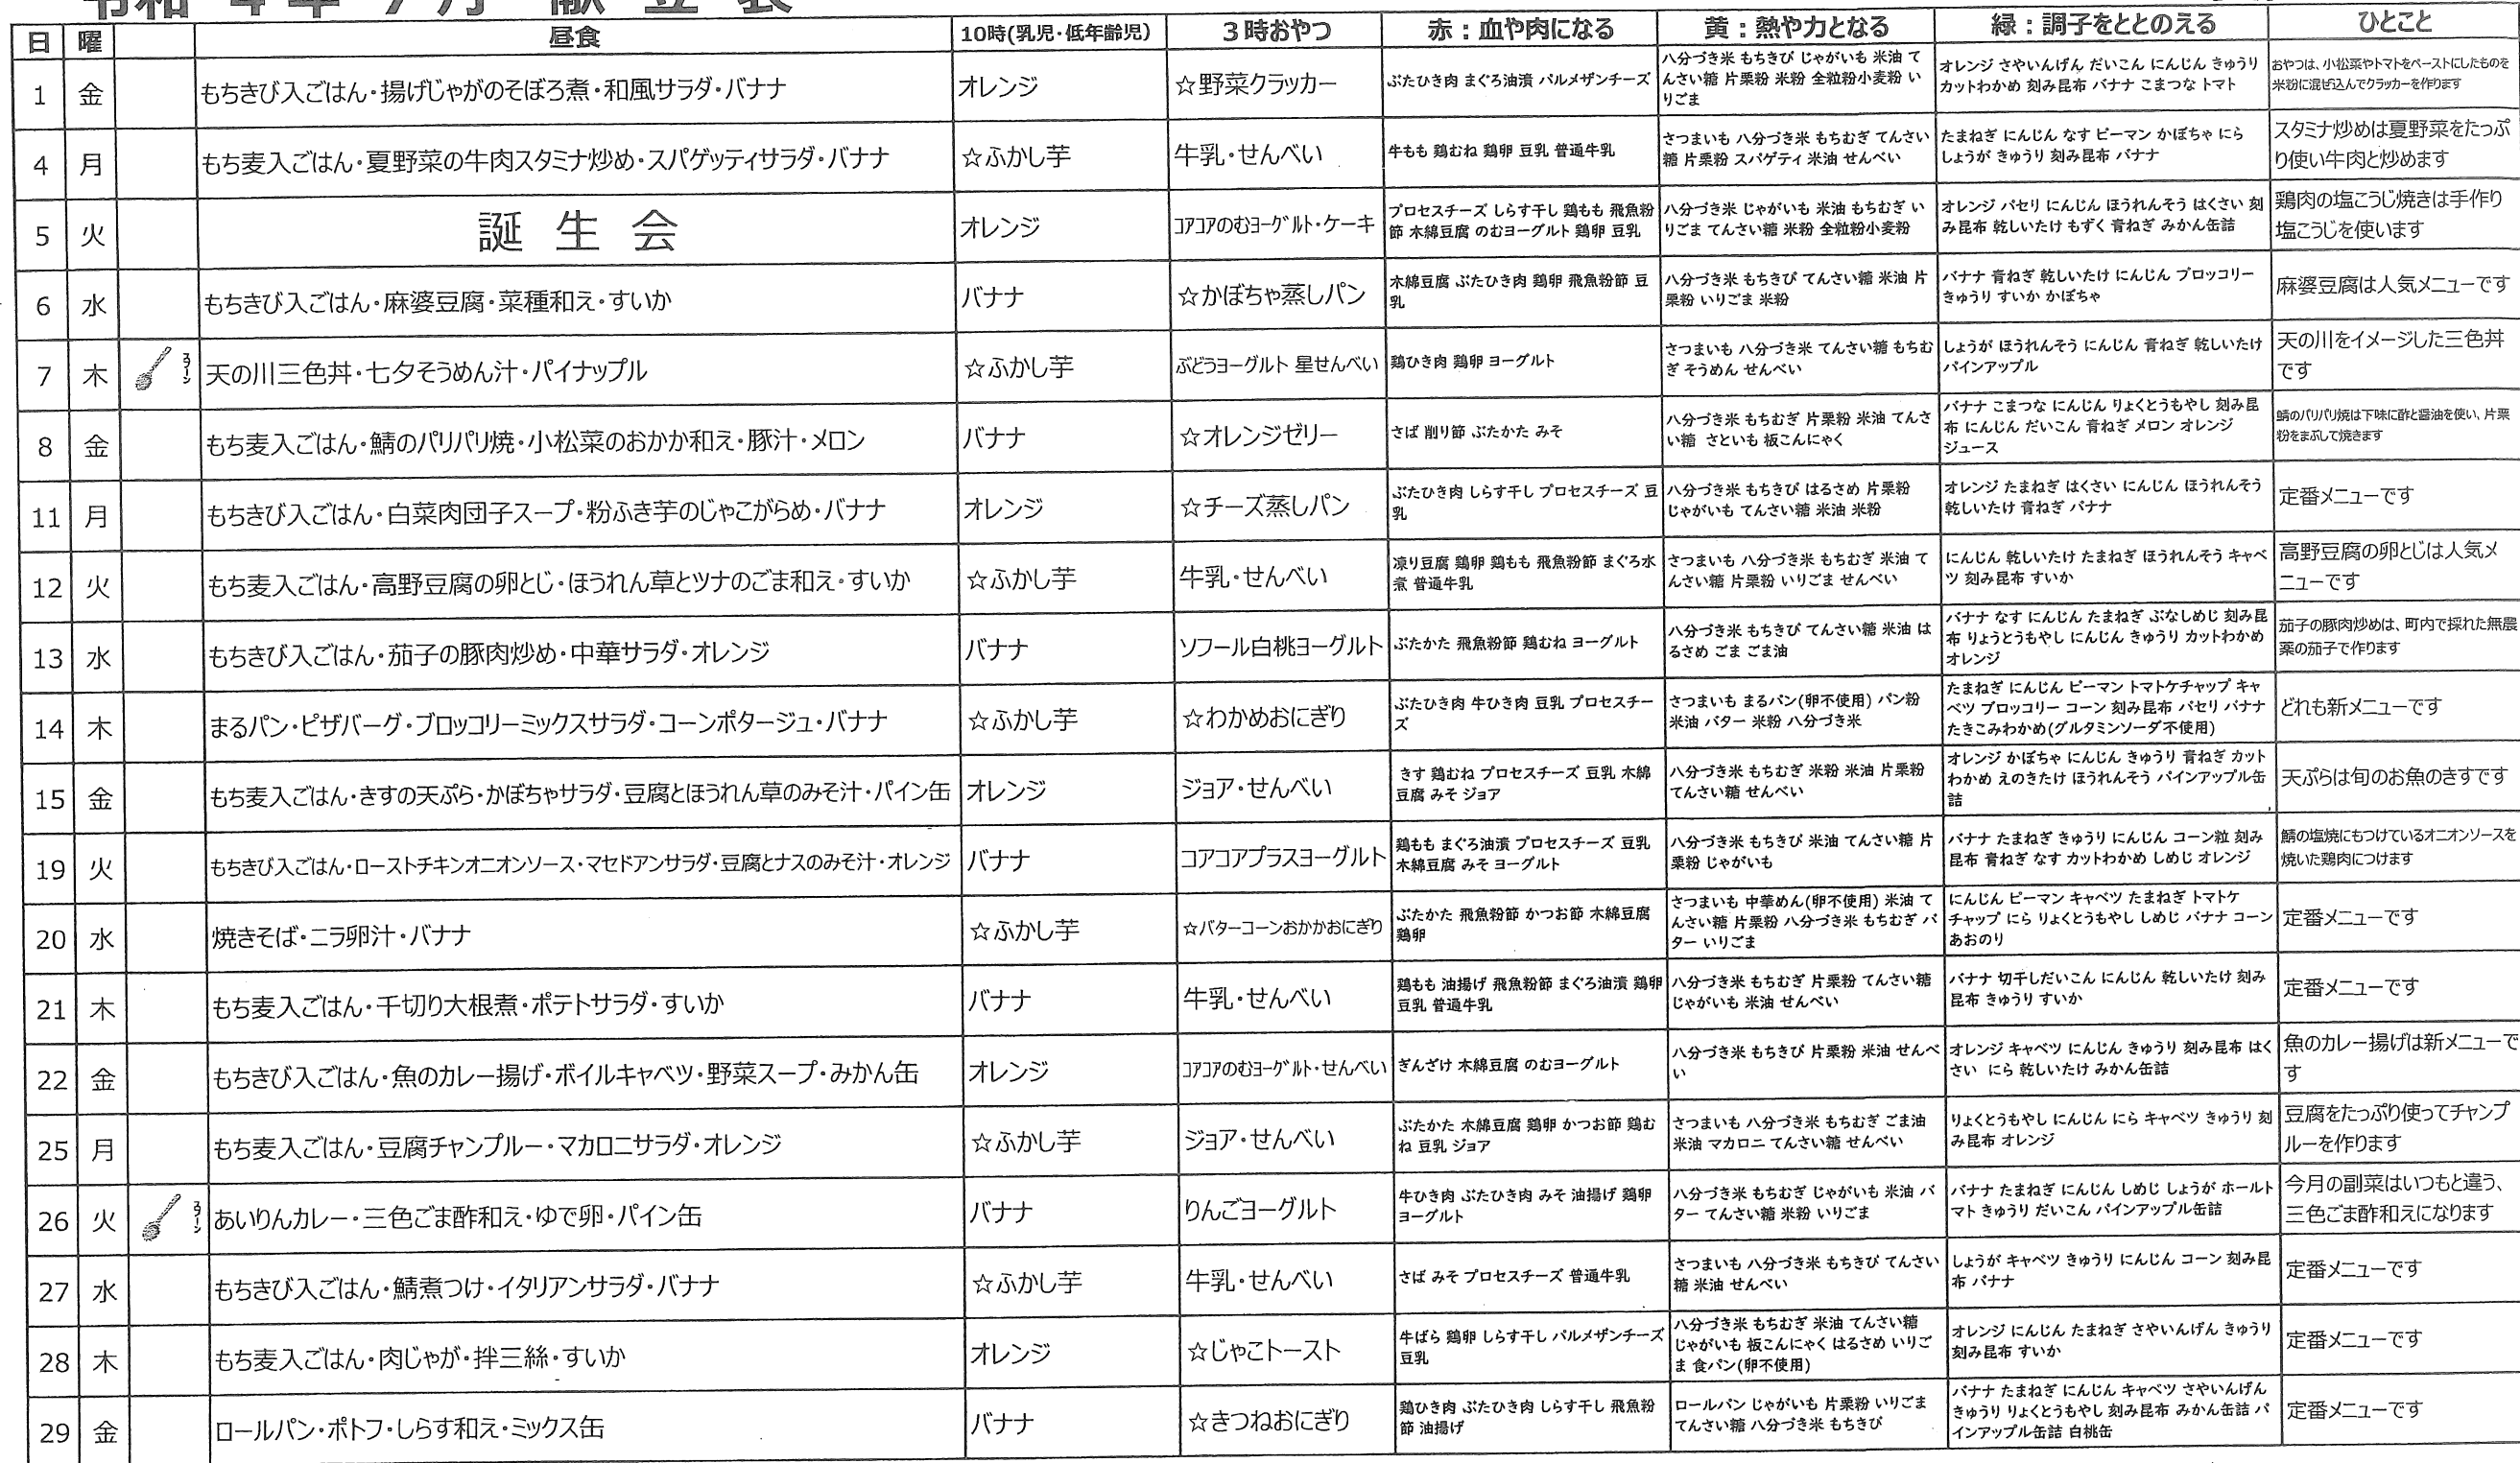 令和 4年 7月 献立表
日 曜 昼食 10時(乳児・低年齢児) 3時おやつ 赤：血や肉になる 黄：熱や力となる 緑：調子をととのえる ひとこと
1 金 もちきび入ごはん・揚げじゃがのそぼろ煮・和風サラダ・バナナ オレンジ ☆野菜クラッカー
ぶたひき肉 まぐろ油漬 パルメザンチーズ
八分づき米 もちきび じゃがいも 米油 て
んさい糖 片栗粉 米粉 全粒粉小麦粉 い
りごま
オレンジ さやいんげん だいこん にんじん きゅうり
カットわかめ 刻み昆布 バナナ こまつな トマト
おやつは、小松菜やトマトをペーストにしたものを
米粉に混ぜ込んでクラッカーを作ります
4 月 もち麦入ごはん・夏野菜の牛肉スタミナ炒め・スパゲッティサラダ・バナナ ☆ふかし芋 牛乳・せんべい
牛もも 鶏むね 鶏卵 豆乳 普通牛乳
さつまいも 八分づき米 もちむぎ てんさい
糖 片栗粉 スパゲティ 米油 せんべい
たまねぎ にんじん なす ピーマン かぼちゃ にら
しょうが きゅうり 刻み昆布 バナナ
スタミナ炒めは夏野菜をたっぷ
り使い牛肉と炒めます
5 火 誕生会 オレンジ ｺｱｺｱのむﾖｰｸﾞﾙﾄ・ケーキ
プロセスチーズ しらす干し 鶏もも 飛魚粉
節 木綿豆腐 のむヨーグルト 鶏卵 豆乳
八分づき米 じゃがいも 米油 もちむぎ い
りごま てんさい糖 米粉 全粒粉小麦粉
オレンジ パセリ にんじん ほうれんそう はくさい 刻
み昆布 乾しいたけ もずく 青ねぎ みかん缶詰
鶏肉の塩こうじ焼きは手作り
塩こうじを使います
6 水 もちきび入ごはん・麻婆豆腐・菜種和え・すいか バナナ ☆かぼちゃ蒸しパン
木綿豆腐 ぶたひき肉 鶏卵 飛魚粉節 豆
乳
八分づき米 もちきび てんさい糖 米油 片
栗粉 いりごま 米粉
バナナ 青ねぎ 乾しいたけ にんじん ブロッコリー
きゅうり すいか かぼちゃ
麻婆豆腐は人気メニューです
7 木 スプーン 天の川三色丼・七夕そうめん汁・パイナップル ☆ふかし芋 ぶどうヨーグルト 星せんべい
鶏ひき肉 鶏卵 ヨーグルト
さつまいも 八分づき米 てんさい糖 もちむ
ぎ そうめん せんべい
しょうが ほうれんそう にんじん 青ねぎ 乾しいたけ
パインアップル
天の川をイメージした三色丼
です
8 金 もち麦入ごはん・鯖のパリパリ焼・小松菜のおかか和え・豚汁・メロン バナナ ☆オレンジゼリー
さば 削り節 ぶたかた みそ
八分づき米 もちむぎ 片栗粉 米油 てんさ
い糖 さといも 板こんにゃく
バナナ こまつな にんじん りょくとうもやし 刻み昆
布 にんじん だいこん 青ねぎ メロン オレンジ
ジュース
鯖のパリパリ焼は下味に酢と醤油を使い、片栗
粉をまぶして焼きます
11 月 もちきび入ごはん・白菜肉団子スープ・粉ふき芋のじゃこがらめ・バナナ オレンジ ☆チーズ蒸しパン
ぶたひき肉 しらす干し プロセスチーズ 豆
乳
八分づき米 もちきび はるさめ 片栗粉
じゃがいも てんさい糖 米油 米粉
オレンジ たまねぎ はくさい にんじん ほうれんそう
乾しいたけ 青ねぎ バナナ
定番メニューです
12 火 もち麦入ごはん・高野豆腐の卵とじ・ほうれん草とツナのごま和え・すいか ☆ふかし芋 牛乳・せんべい
凍り豆腐 鶏卵 鶏もも 飛魚粉節 まぐろ水
煮 普通牛乳
さつまいも 八分づき米 もちむぎ 米油 て
んさい糖 片栗粉 いりごま せんべい
にんじん 乾しいたけ たまねぎ ほうれんそう キャベ
ツ 刻み昆布 すいか
高野豆腐の卵とじは人気メ
ニューです
13 水 もちきび入ごはん・茄子の豚肉炒め・中華サラダ・オレンジ バナナ ソフール白桃ヨーグルト
ぶたかた 飛魚粉節 鶏むね ヨーグルト
八分づき米 もちきび てんさい糖 米油 は
るさめ ごま ごま油
バナナ なす にんじん たまねぎ ぶなしめじ 刻み昆
布 りょうとうもやし にんじん きゅうり カットわかめ
オレンジ
茄子の豚肉炒めは、町内で採れた無農
薬の茄子で作ります
14 木 まるパン・ピザバーグ・ブロッコリーミックスサラダ・コーンポタージュ・バナナ ☆ふかし芋 ☆わかめおにぎり
ぶたひき肉 牛ひき肉 豆乳 プロセスチー
ズ
さつまいも まるパン(卵不使用) パン粉
米油 バター 米粉 八分づき米
たまねぎ にんじん ピーマン トマトケチャップ キャ
ベツ ブロッコリー コーン 刻み昆布 パセリ バナナ
たきこみわかめ(グルタミンソーダ不使用)
どれも新メニューです
15 金 もち麦入ごはん・きすの天ぷら・かぼちゃサラダ・豆腐とほうれん草のみそ汁・パイン缶 オレンジ ジョア・せんべい
きす 鶏むね プロセスチーズ 豆乳 木綿
豆腐 みそ ジョア
八分づき米 もちむぎ 米粉 米油 片栗粉
てんさい糖 せんべい
オレンジ かぼちゃ にんじん きゅうり 青ねぎ カット
わかめ えのきたけ ほうれんそう パインアップル缶
詰
天ぷらは旬のお魚のきすです
19 火 もちきび入ごはん・ローストチキンオニオンソース・マセドアンサラダ・豆腐とナスのみそ汁・オレンジ バナナ コアコアプラスヨーグルト
鶏もも まぐろ油漬 プロセスチーズ 豆乳
木綿豆腐 みそ ヨーグルト
八分づき米 もちきび 米油 てんさい糖 片
栗粉 じゃがいも
バナナ たまねぎ きゅうり にんじん コーン粒 刻み
昆布 青ねぎ なす カットわかめ しめじ オレンジ
鯖の塩焼にもつけているオニオンソースを
焼いた鶏肉につけます
20 水 焼きそば・ニラ卵汁・バナナ ☆ふかし芋 ☆バターコーンおかかおにぎり
ぶたかた 飛魚粉節 かつお節 木綿豆腐
鶏卵
さつまいも 中華めん(卵不使用) 米油 て
んさい糖 片栗粉 八分づき米 もちむぎ バ
ター いりごま
にんじん ピーマン キャベツ たまねぎ トマトケ
チャップ にら りょくとうもやし しめじ バナナ コーン
あおのり
定番メニューです
21 木 もち麦入ごはん・千切り大根煮・ポテトサラダ・すいか バナナ 牛乳・せんべい
鶏もも 油揚げ 飛魚粉節 まぐろ油漬 鶏卵
豆乳 普通牛乳
八分づき米 もちむぎ 片栗粉 てんさい糖
じゃがいも 米油 せんべい
バナナ 切干しだいこん にんじん 乾しいたけ 刻み
昆布 きゅうり すいか
定番メニューです
22 金 もちきび入ごはん・魚のカレー揚げ・ボイルキャベツ・野菜スープ・みかん缶 オレンジ ｺｱｺｱのむﾖｰｸﾞﾙﾄ・せんべい
ぎんざけ 木綿豆腐 のむヨーグルト
八分づき米 もちきび 片栗粉 米油 せんべ
い
オレンジ キャベツ にんじん きゅうり 刻み昆布 はく
さい にら 乾しいたけ みかん缶詰
魚のカレー揚げは新メニューで
す
25 月 もち麦入ごはん・豆腐チャンプルー・マカロニサラダ・オレンジ ☆ふかし芋 ジョア・せんべい
ぶたかた 木綿豆腐 鶏卵 かつお節 鶏む
ね 豆乳 ジョア
さつまいも 八分づき米 もちむぎ ごま油
米油 マカロニ てんさい糖 せんべい
りょくとうもやし にんじん にら キャベツ きゅうり 刻
み昆布 オレンジ
豆腐をたっぷり使ってチャンプ
ルーを作ります
26 火 スプーン あいりんカレー・三色ごま酢和え・ゆで卵・パイン缶 バナナ りんごヨーグルト
牛ひき肉 ぶたひき肉 みそ 油揚げ 鶏卵
ヨーグルト
八分づき米 もちむぎ じゃがいも 米油 バ
ター てんさい糖 米粉 いりごま
バナナ たまねぎ にんじん しめじ しょうが ホールト
マト きゅうり だいこん パインアップル缶詰
今月の副菜はいつもと違う、
三色ごま酢和えになります
27 水 もちきび入ごはん・鯖煮つけ・イタリアンサラダ・バナナ ☆ふかし芋 牛乳・せんべい
さば みそ プロセスチーズ 普通牛乳
さつまいも 八分づき米 もちきび てんさい
糖 米油 せんべい
しょうが キャベツ きゅうり にんじん コーン 刻み昆
布 バナナ
定番メニューです
28 木 もち麦入ごはん・肉じゃが・拌三絲・すいか オレンジ ☆じゃこトースト
牛ばら 鶏卵 しらす干し パルメザンチーズ
豆乳
八分づき米 もちむぎ 米油 てんさい糖
じゃがいも 板こんにゃく はるさめ いりご
ま 食パン(卵不使用)
オレンジ にんじん たまねぎ さやいんげん きゅうり
刻み昆布 すいか
定番メニューです
29 金 ロールパン・ポトフ・しらす和え・ミックス缶 バナナ ☆きつねおにぎり
鶏ひき肉 ぶたひき肉 しらす干し 飛魚粉
節 油揚げ
ロールパン じゃがいも 片栗粉 いりごま
てんさい糖 八分づき米 もちきび
バナナ たまねぎ にんじん キャベツ さやいんげん
きゅうり りょくとうもやし 刻み昆布 みかん缶詰 パ
インアップル缶詰 白桃缶
定番メニューです